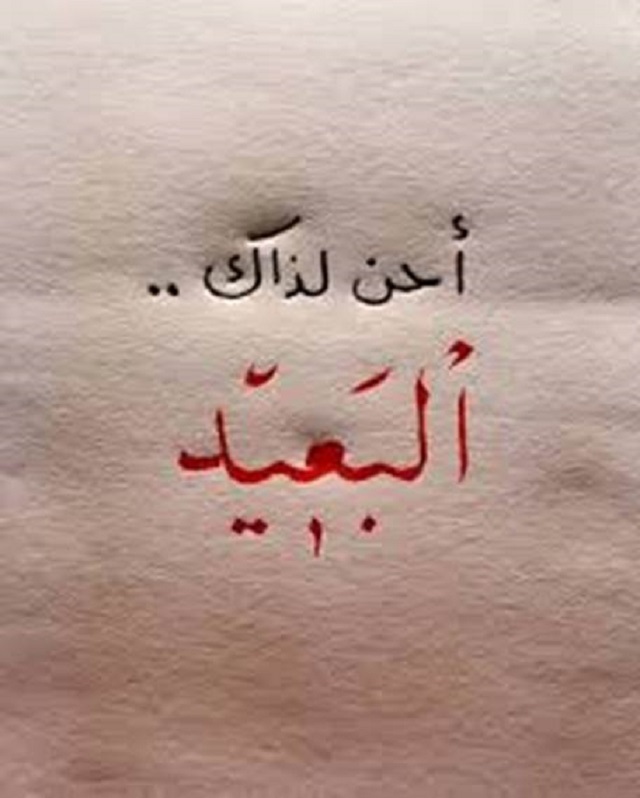 أحن لذاك ..
ألبَعيّد